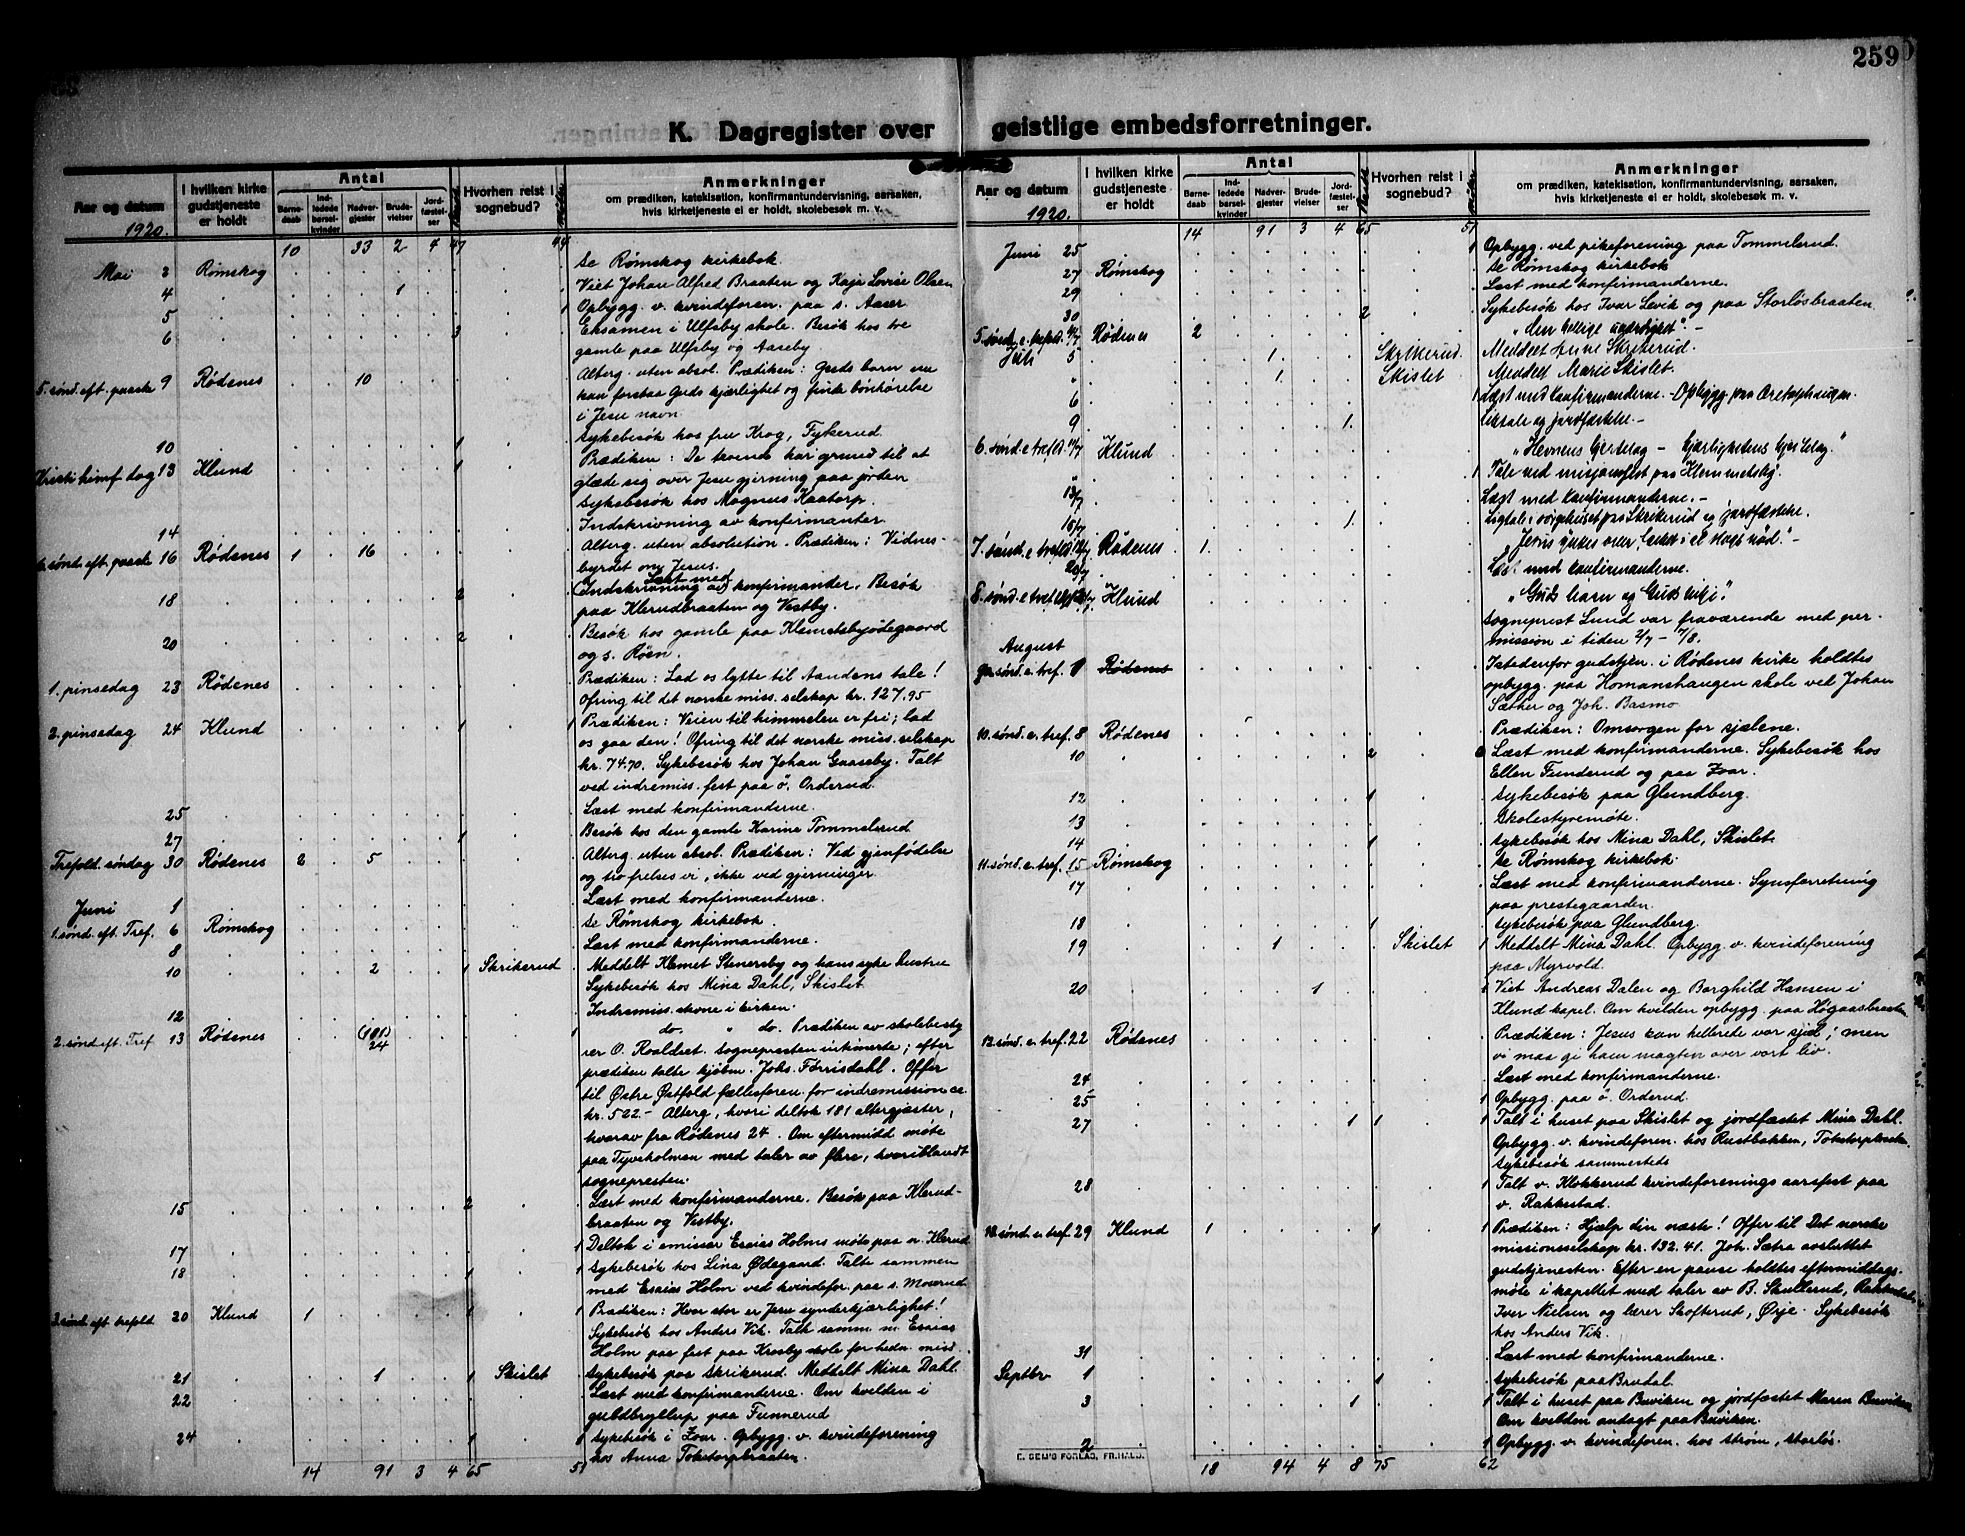 259
K. Dagregister over geistlige embedsforretninger.
Aar og datum
1920.
I hvilken kirke gudstjeneste er holdt
Antal
Barnedaab
Indledede barselkvinder
Nadvergjester
Brudevielser
Jordfæstelser
Hvorhen reist i sognebud?
Anmerkninger
om prædiken, katekisation, konfirmantundervisning, aarsaken,
hvis kirketjeneste ei er holdt, skolebesøk m. v.
10 33 2 4 47 44
Mai 2 Rømskog Se Rømskog kirkebok.
4 1 Viet Johan Alfred Braaten og Kaja Lovise Olsen
5 1 Opbygg. v. kvindeforen. paa s. Aaser
6 3 Eksamen i Ulfsby skole. Besøk hos tre
gamle paa Ulfsby og Aaseby.
5. sønd. eft. paaske 9 Rødenes 10 Alterg. uten absol. Prædiken: Guds barn nu
kan forstaa Guds kjærlighet og finde bønhørelse
i Jesu navn.
10 1 Sykebesøk hos fru Krog, Fykerud.
Kristi himf. dag 13 Klund 1 Prædiken: De troende har grund til at
glæde sig over Jesu gjerning paa jorden
Sykebesøk hos Magnus Kaatorp.
14 Indskrivning av konfirmanter
6. sønd. eft. paaske 16 Rødenes 1 16 Alterg. uten absolution. Prædiken: Vidnes-
byrdet om Jesus.
18 2 (Indskrivning av) Læst med konfirmander. Besøk
paa Klerudbraaten og Vestby.
20 2 Besøk hos gamle paa Klemetsbyødegaard
og s. Røen.
1. pinsedag 23 Rødenes Prædiken: Lad os lytte til Aandens tale!
Ofring til det norske miss. selskap kr. 127.95
2. pinsedag 24 Klund 1 1 Prædiken: Veien til himmelen er fri; lad
os gaa den! Ofring til det norske miss. selskap
kr. 74.70. Sykebesøk hos Johan Gaaseby. Talt
ved indremiss. fest paa ö. Orderud.
25 Læst med konfirmanderne.
27 1 Besøk hos den gamle Karine Tommelerud
Trefold. søndag 30 Rødenes 2 5 Alterg. uten absol. Prædiken: Ved gjenfödelse
og tro frelses vi, ikke ved gjerninger.
Juni 1 Læst med konfirmanderne.
1. sønd. eft. Tref. 6 Rømskog Se Rømskog kirkebok.
8 Læst med konfirmanderne.
10 2 1 Skrikerud Meddelt Klemet Stenersby og hans syke hustru
Sykebesøk hos Mina Dahl, Skislet.
12 Indremis. stevne i kirken.
2. sønd. eft. Tref. 13 Rødenes (181) 24 1 do. " do. Prædiken av skolebesty
rer O. Roaldset. Sognepresten intimerte; efter
prædiken talte kjöbm. Johs. Förrisdahl. Offer
til Østre Østfold fællesforen. for indremission
kr. 522.- Alterg., hvori deltok 181 altergjæster,
hvorav fra Rødenes 24. Om eftermidd. møte
paa Tyveholmen med taler av flere, hvoriblandt
sognepresten.
15 2 Læst med konfirmanderne. Besøk paa Klerud-
braaten og Vestby.
17 1 Deltok i emissær Esaias Holms møte paa n. Klerud
18 1 1 Sykebesøk hos Lina Ødegaard. Talte sammen
med Esaias Holm ved kvindefor. paa s. Moserud
3. sønd. eft. trefold. 20 Klund 1 1 1 Prædiken: Hvor stor er Jesu synderkjærlighet!
Sykebesøk hos Anders Vik. Talte samm. m. Esaias
Holm paa fest paa Krosby skole for hedn. miss.
21 1 1 Skislet Sykebesøk paa Skrikerud. Meddelt Mina Dahl.
22 Læst med konfirmanderne. Om kvelden i
guldbryllup paa Funnerud
24 1 1 Sykebesøk i Zvar. Opbygg. v. kvindeforening
hos Anna Tokstorpbraaten.
14 91 3 4 65 51
Aar og datum
1920.
I hvilken kirke gudstjeneste er holdt
Antal
Barnedaab
Indledede barselkvinder
Nadvergjester
Brudevielser
Jordfæstelser
Hvorhen reist i sognebud?
Anmerkninger
om prædiken, katekisation, konfirmantundervisning, aarsaken,
hvis kirketjeneste ei er holdt, skolebesøk m. v.
14 91 3 4 65 51
Juni 25 1 Opbygg. ved pikeforening paa Tommelerud.
27 Rømskog Se Rømskog kirkebok
29 Læst med konfirmanderne.
30 2 Sykebesøk hos Ivar Levik og paa Storlösbraaten
5. sønd. e. trefold. 4/7 Rødenes 2 "den hellige
Juli 5 1 Skrikerud. Meddelt Anne Skrikerud.
" 1 Skislet Meddelt Marie Skislet.
6 1 Læst med konfirmanderne. - Opbygg. paa
9 1 Liktale og jordfæstelse. -
6. sønd. e. trefold. 11/7 Klund "Hevnens hjertelag - Kjærlighetens hjertelag."
" 1 Tale ved misjonsfest paa Klemmetsby.
13/7 Læst med konfirmanderne. -
1 Ligtale i sørgehuset paa Skrikerud og jordfæstelse.
7. sønd. e. trefold. Rødenes 1 "Jesus
20/7 Læst med konfirmanderne.
8. sønd. e. trefold. Klund "Guds barn og Guds
Sogneprest Lund var fraværende med per-
mission i tiden 2/7 - 7/8.
August
9de sønd. e. tref. 1 Rødenes Istedenfor gudstjen. i Rødenes kirke holdtes
opbygg. paa Homanshaugen skole ved Johan
Sæther og Joh. Basmo
10. sønd. e. tref. 8 Rødenes Prædiken: Omsorgen for sjælene.
10 2 Læst med konfirmanderne. Sykebesøk hos
Ellen Funderud og paa Zvar.
12 1 Sykebesøk paa Glundberg.
13 Skolestyremøte.
14 1 Sykebesøk hos Mina Dahl, Skislet.
11. sønd. e. tref. 15 Rømskog Se Rømskog kirkebok.
17 Læst med konfirmanderne. Synsforretning
paa prestegaarden.
18 1 Sykebesøk paa Glundberg.
19 1 Skislet 1 Meddelt Mina Dahl. Opbygg. v. kvindeforening
paa Myrvold.
20 1 Viet Andreas Dalen og Borghild Hansen i
Klund kapel. Om kvelden opbygg. paa Högaasbraaten
12. sønd. e. tref. 22 Rødenes Prædiken: Jesus kan helbrede vor sjæl; men
vi maa gi ham magten over vort liv.
24 Læst med konfirmanderne.
25 1 Opbygg. paa ö. Orderud.
27 1 1 1 Talt i huset paa Skislet og jordfæstet Mina Dahl.
Opbygg. v. kvindeforen. hos Rustbakken,
Sykebesøk sammesteds
28 1 Talt v. Klokkerud kvindeforenings aarsfest paa
v. Rakkestad.
13. sønd. e. tref. 29 Klund 1 1 1 Prædiken: Hjælp din næste! Offer til Det norske
missionsselskap kr. 132.41. Joh. Sætra avsluttet
gudstjenesten. Efter en pause holdtes eftermiddags-
møte i kapellet med taler av B. Skullerud, Rakkestad,
Iver Nielsen og lærer Skofterud, Ørje. Sykebesøk
hos Anders Vik.
31 Læst med konfirmanderne.
Septbr 1 1 Sykebesøk paa Brudal.
3 1 1 Talt i huset paa Buviken og jordfæstet Maren Buviken
Om kvelden andagt paa Buviken.
2 1 Opbygg. v. kvindeforen. hos Strøm, Storlös.
E. SEM'S FORLAG, FR.HALD.
18 94 4 8 75 62